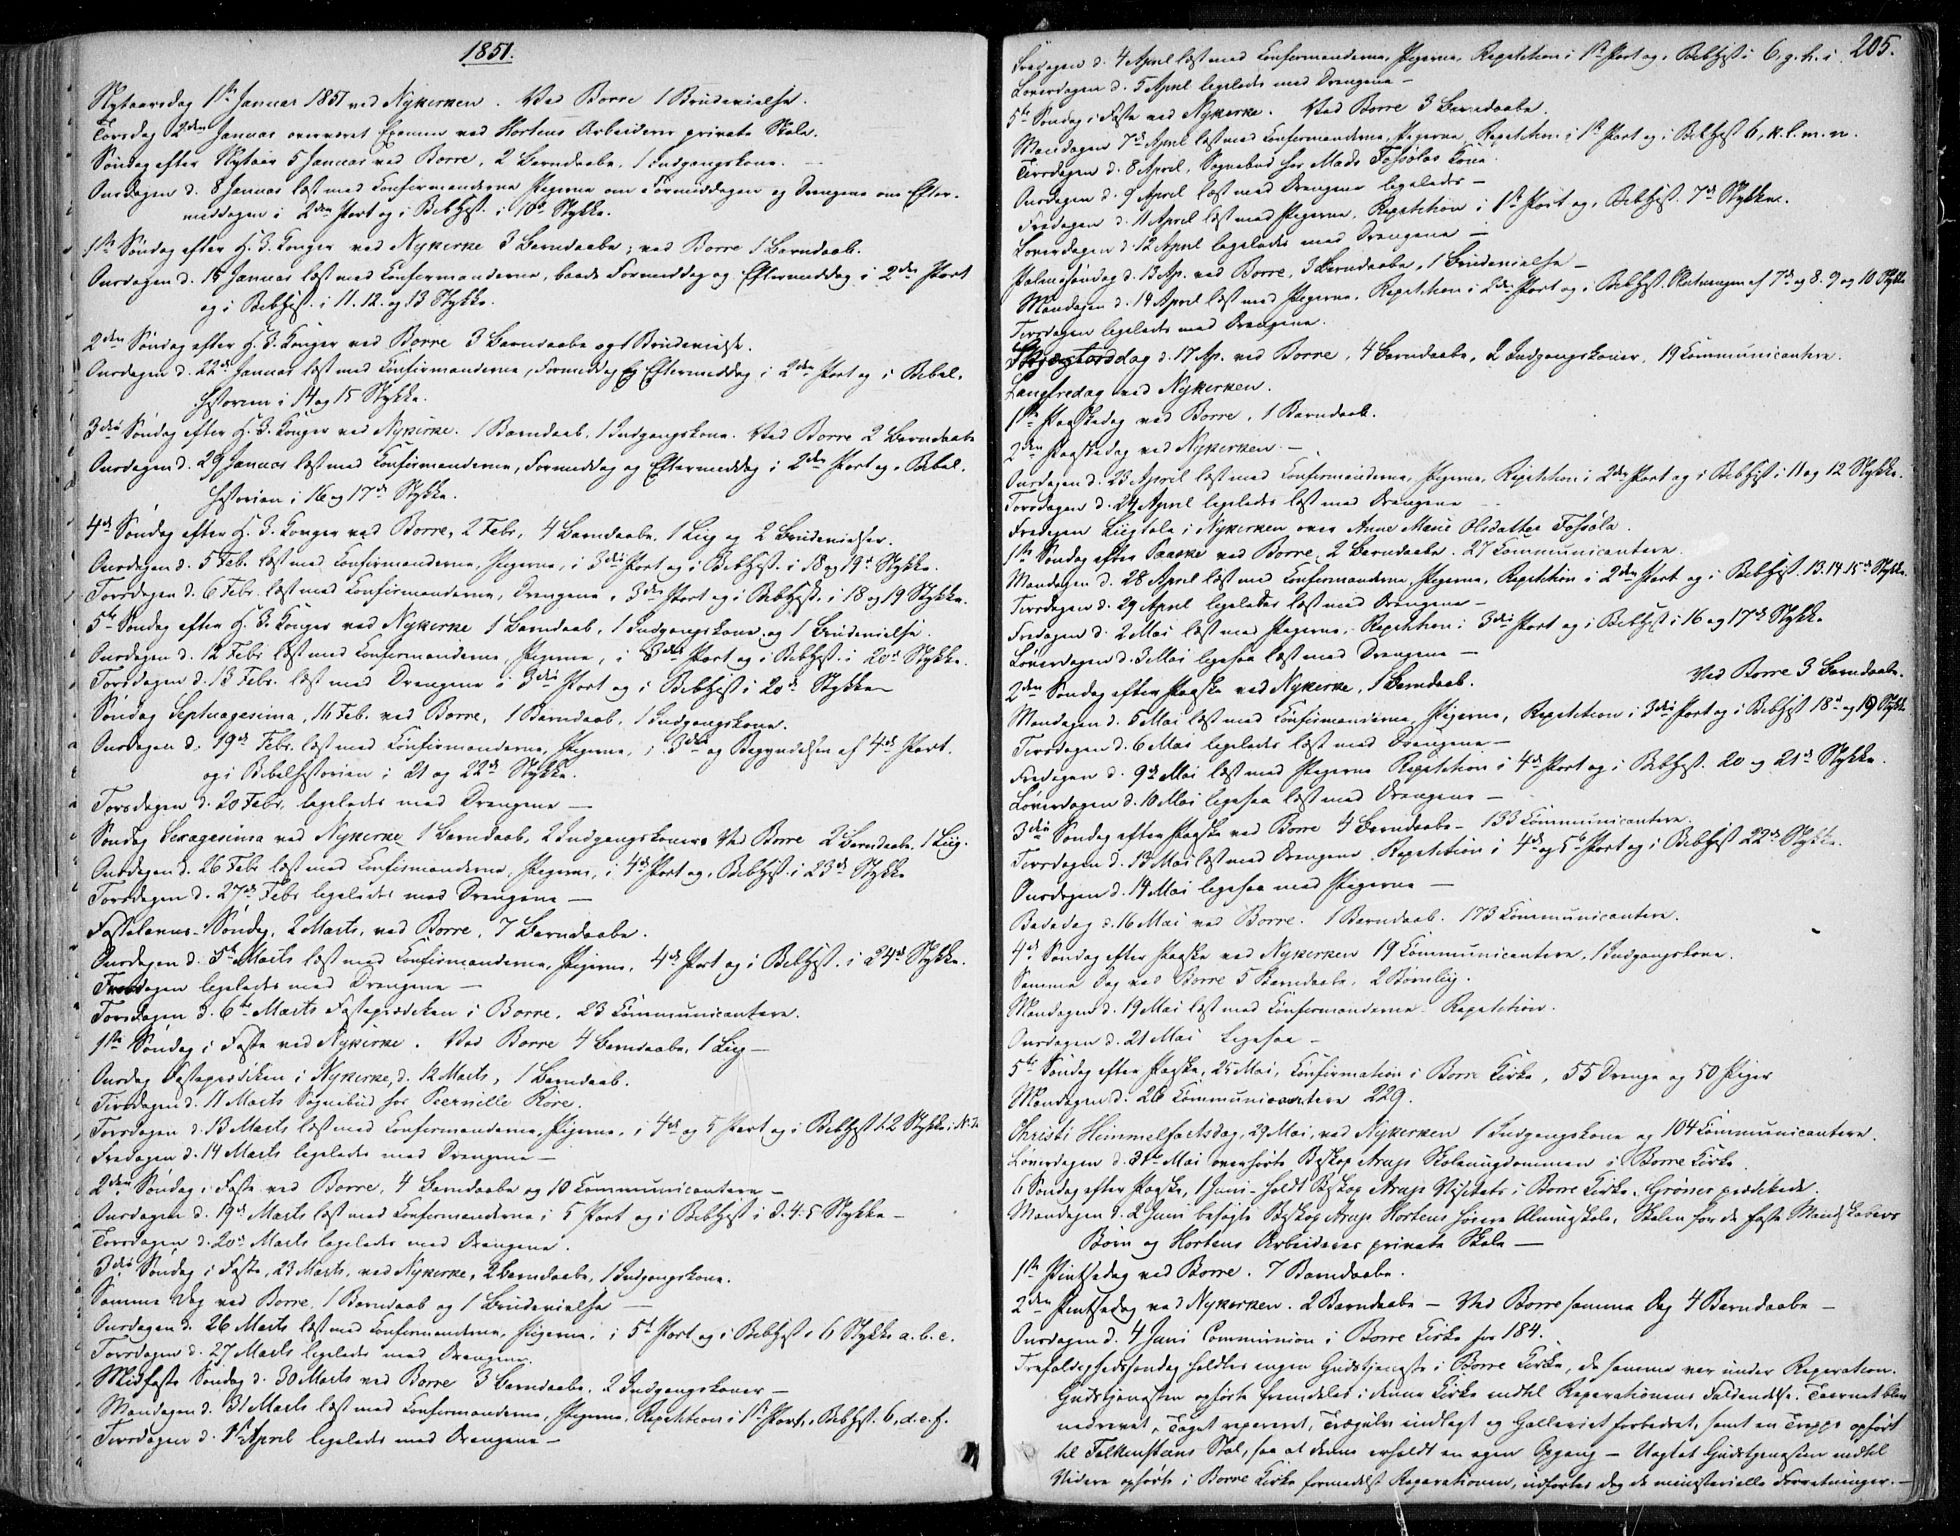 1851.
Nytaarsdag 1ste Januar 1851 ved Nykerken. Ved Borre 1 Brudevielse.
Torsdag 2den Januar overværet Examen ved Hortens Arbeideres private Skole.
Søndag efter Nytaar 5 Januar ved Borre, 2 Barndaabe, 1 Indgangskone. —
Onsdagen d. 8 Januar læst med Confirmanderne Pigerne om Formiddagen og Drengene om Efter-
middagen i 2den Part og i Bibelhist. i 10de Stykke.
1ste Søndag efter H. 3. Konger ved Nykerke 3 Barndaabe; ved Borre 1 Barndaab.
Onsdagen d. 15 Januar læst med Confirmanderne, baade Formiddag og Eftermiddag i 2den Part
og i Bibelhist. i 11. 12. og 13 Stykke.
2den Søndag efter H. 3. Konger ved Borre 3 Barndaabe og 1 Brudevielse.
Onsdagen d. 22de Januar læst med Confirmanderne, Formiddag og Eftermiddag i 2den Part og i Bibel-
historien i 14 og 15 Stykke.
3die Søndag efter H. 3. Konger ved Nykirke. 1 Barndaab, 1 Indgangskone. Ved Borre 2 Barndaabe
Onsdagen d. 29 Januar læst med Confirmanderne, Formiddag og Eftermiddag i 2den Part og i Bibel-
historien i 16 og 17de Stykke.
4de Søndag efter H. 3. Konger ved Borre, 2 Febr, 4 Barndaabe, 1 Liig og 2 Brudevielser.
Onsdagen d. 5 Feb. læst med Confirmanderne, Pigerne, i 3die Part og i Bibelhist. i 18 og 19de Stykke.
Torsdagen d. 6 Febr. læst med Confirmanderne, Drengene, 3die Part og i Bibelhist. i 18 og 19 Stykke.
5te Søndag efter H. 3. Konger ved Nykerke 1 Barndaab, 1 Indgangskone og 1 Brudevielse.
Onsdagen d. 12 Febr læst med Confirmanderne, Pigerne, i 3die Part og i Bibelhist. i 20de Stykke.
Torsdagen d. 13 Febr. læst med Drengene i 3die Part og i Bibelhist i 20de Stykke
Søndag Septuagesima, 16 Feb. ved Borre, 1 Barndaab, 1 Indgangskone.
Onsdagen d. 19de Febr. læst med Confirmanderne, Pigerne, i 3die og Begyndelsen af 4de Part.
og i Bibelhistorien i 21 og 22de Stykke.
Torsdagen d. 20 Febr. ligeledes med Drengene —
Søndag Sexagesima ved Nykerke 1 Barndaab, 2 Indgangskoner. Ved Borre 2 Barndaabe, 1 Liig.
Onsdagen d. 26 Febr læst med Confirmanderne, Pigerne, i 4de Part og i Bibelhist. i 23de Stykke
Torsdagen d. 27de Febr ligeledes med Drengene —
Fastelavns-Søndag, 2 Marts, ved Borre, 7 Barndaabe.
Onsdagen d. 5te Marts læst med Confirmanderne, Pigerne, 4de Part og i Bibelhist. i 24de Stykke.
Fredagen ligeledes med Drengene —
Torsdagen d. 6te Marts Fasteprædiken i Borre, 23 Communicantere.
1ste Søndag i Faste ved Nykirke. Ved Borre 4 Barndaabe, 1 Liig —
Onsdag Fasteprædiken i Nykerke, d. 12 Marts, 1 Barndaab.
Tirsdagen d. 11 Marts Sognebud hos Peernille Røre.
Torsdagen d. 13 Marts læst med Confirmanderne, Pigerne, i 4de og 5 Part og i Bibelhist 1. 2 Stykke i N. T.
Fredagen d. 14 Marts ligeledes med Drengene —
2den Søndag i Faste ved Borre, 4 Barndaabe og 10 Communicantere —
Onsdagen d. 19de Marts læst med Confirmanderne i 5 Part og i Bibelhist i 3. 4. 5 Stykke —
Torsdagen d. 20de Marts ligeledes med Drengene.
3die Søndag i Faste, 23 Marts, ved Nykerke, 2 Barndaabe, 1 Indgangskone.
Samme Dag ved Borre, 1 Barndaab og 1 Brudevielse —
Onsdagen d. 26 Marts læst med Confirmanderne, Pigerne, i 5te Part og i Bibelhist. 6 Stykke a. b. c.
Torsdagen d. 27 Marts ligeledes med Drengene.
Midfaste Søndag d. 30 Marts ved Borre 3 Barndaabe, 2 Indgangskoner —
Mandagen d. 31 Marts læst med Confirmanderne, Pigerne, Repetition i 1ste Part, Bibelhist. 6. d. e. f.
Tirsdagen d. 1ste April ligeledes med Drengene —
205.
Fredagen d. 4 April læst med Confirmanderne, Pigerne, Repetition i 1ste Part og Bibelhist i 6. g. h. i.
Løverdagen d. 5 April ligeledes med Drengene —
5te Søndag i Faste ved Nykerke. Ved Borre 3 Barndaabe.
Mandagen 7de April læst med Confirmanderne, Pigerne, Repetition i 1ste Part og i Bibelhist 6, k. l. m. n.
Tirsdagen d. 8 April, Sognebud hos Mads Fossølas Kone.
Onsdagen d. 9 April læst med Drengene ligeledes —
Fredagen d. 11 April læst med Pigerne, Repetition i 1ste Part og Bibelhist. 7de Stykke.
Løverdagen d. 12 April ligeledes med Drengene —
Palmesøndag d. 13 Ap. ved Borre, 3 Barndaabe, 1 Brudevielse —
Mandagen d. 14 April læst med Pigerne, Repetition i 2den Part og i Bibelhist. Slutningen af 7de og 8. 9 og 10 Stykke
Tirsdagen ligeledes med Drengene.
Skjærtorsdag d. 17 Ap. ved Borre, 4 Barndaabe, 2 Indgangskoner, 19 Communicantere.
Langfredag ved Nykerken.
1ste Paaskedag ved Borre, 1 Barndaab.
2den Paaskedag ved Nykerken. —
Onsdagen d. 23 April læst med Confirmanderne, Pigerne, Repetition i 2den Part og i Bibelhist i 11 og 12 Stykke.
Torsdagen d. 24 April ligeledes læst med Drengene
Fredagen Liigtale i Nykerken over Anne Marie Olsdatter Fossøla.
1ste Søndag efter Paaske ved Borre, 2 Barndaabe. 27 Communicantere.
Mandagen d. 28 April læst med Confirmanderne, Pigerne, Repetition i 2den Part og i Bibelhist. 13. 14. 15de Stykke.
Tirsdagen d. 29 April ligeledes læst med Drengene —
Fredagen d. 2 Mai læst med Pigerne, Repetition i 3die Part og i Bibelhist i 16 og 17de Stykke
Løverdagen d. 3 Mai ligesaa læst med Drengene —
2den Søndag efter Paaske ved Nykerke, 1 Barndaab. Ved Borre 3 Barndaabe.
Mandagen d. 5 Mai læst med Confirmanderne, Pigerne, Repetition i 3die Part og i Bibelhist 18de og 19 Stykke
Tirsdagen d. 6 Mai ligeledes læst med Drengene —
Fredagen d. 9de Mai læst med Pigerne Repetition i 4de Part og i Bibelhist. 20 og 21de Stykke.
Løverdagen d. 10 Mai ligesaa læst med Drengene —
3die Søndag efter Paaske ved Borre 4 Barndaabe — 133 Communicantere.
Tirsdagen d. 13 Mai læst med Drengene, Repetition i 4de og 5te Part og i Bibelhist 22de Stykke.
Onsdagen d. 14 Mai ligesaa med Pigerne —
Bededag d. 16 Mai ved Borre. 1 Barndaab. 173 Communicantere.
4de Søndag efter Paaske ved Nykerken 19 Communicantere, 1 Indgangskone.
Samme Dag ved Borre 5 Barndaabe, 2 Børnelig.
Mandagen d. 19 Mai læst med Confirmanderne. Repetition.
Onsdagen d. 21 Mai Ligesaa —
5te Søndag efter Paaske, 25 Mai, Confirmation i Borre Kirke, 55 Drenge og 50 Piger
Mandagen d. 26 Communicantere 229.
Christi Himmelfartsdag, 29 Mai, ved Nykerken 1 Indgangskone og 104 Communicantere.
Løverdagen d. 31te Mai overhørte Biskop Arup Skoleungdommen i Borre Kirke.
6 Søndag efter Paaske, 1 Juni — holdt Biskop Arup Visitats i Borre Kirke. Grøner prædikede.
Mandagen d. 2 Juni besøgte Biskop Arup Hortens høiere Almueskole, Skolen for de faste Mandskabers
Børn og Hortens Arbeideres private Skole —
1ste Pintsedag ved Borre. 7 Barndaabe.
2den Pintsedag ved Nykerken. 2 Barndaabe — Ved Borre samme Dag 4 Barndaabe —
Onsdagen d. 4 Juni Communion i Borre Kirke for 184.
Trefoldighedssøndag holdtes ingen Gudstjeneste i Borre Kirke, da samme var under Reparation.
Gudstjenesten ophørte fremdeles i denne Kirke indtil Reparationens Fuldendelse. Taarnet blev
nedrevet, Taget repareret, Trægulv indlagt og Galleriet forbedret, samt en Trappe opført
til Falkenstens Stol, saa at denne erholdt en egen Opgang — Uagtet Gudstjenesten indtil
Videre ophørte i Borre Kirke formedelst Reparationen, udførtes dog de ministerielle Forretninger. —